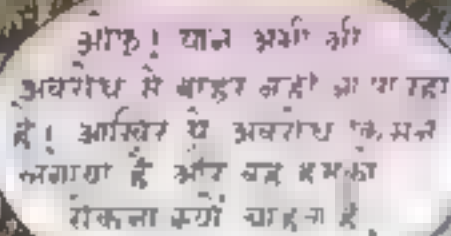 ओफ! यान अभी भी
अवरोध से बाहर नहीं आ पा रहा
है। आखिर ये अवरोध किसने
लगाया है और वह हमको
रोकना क्यों चाहता है